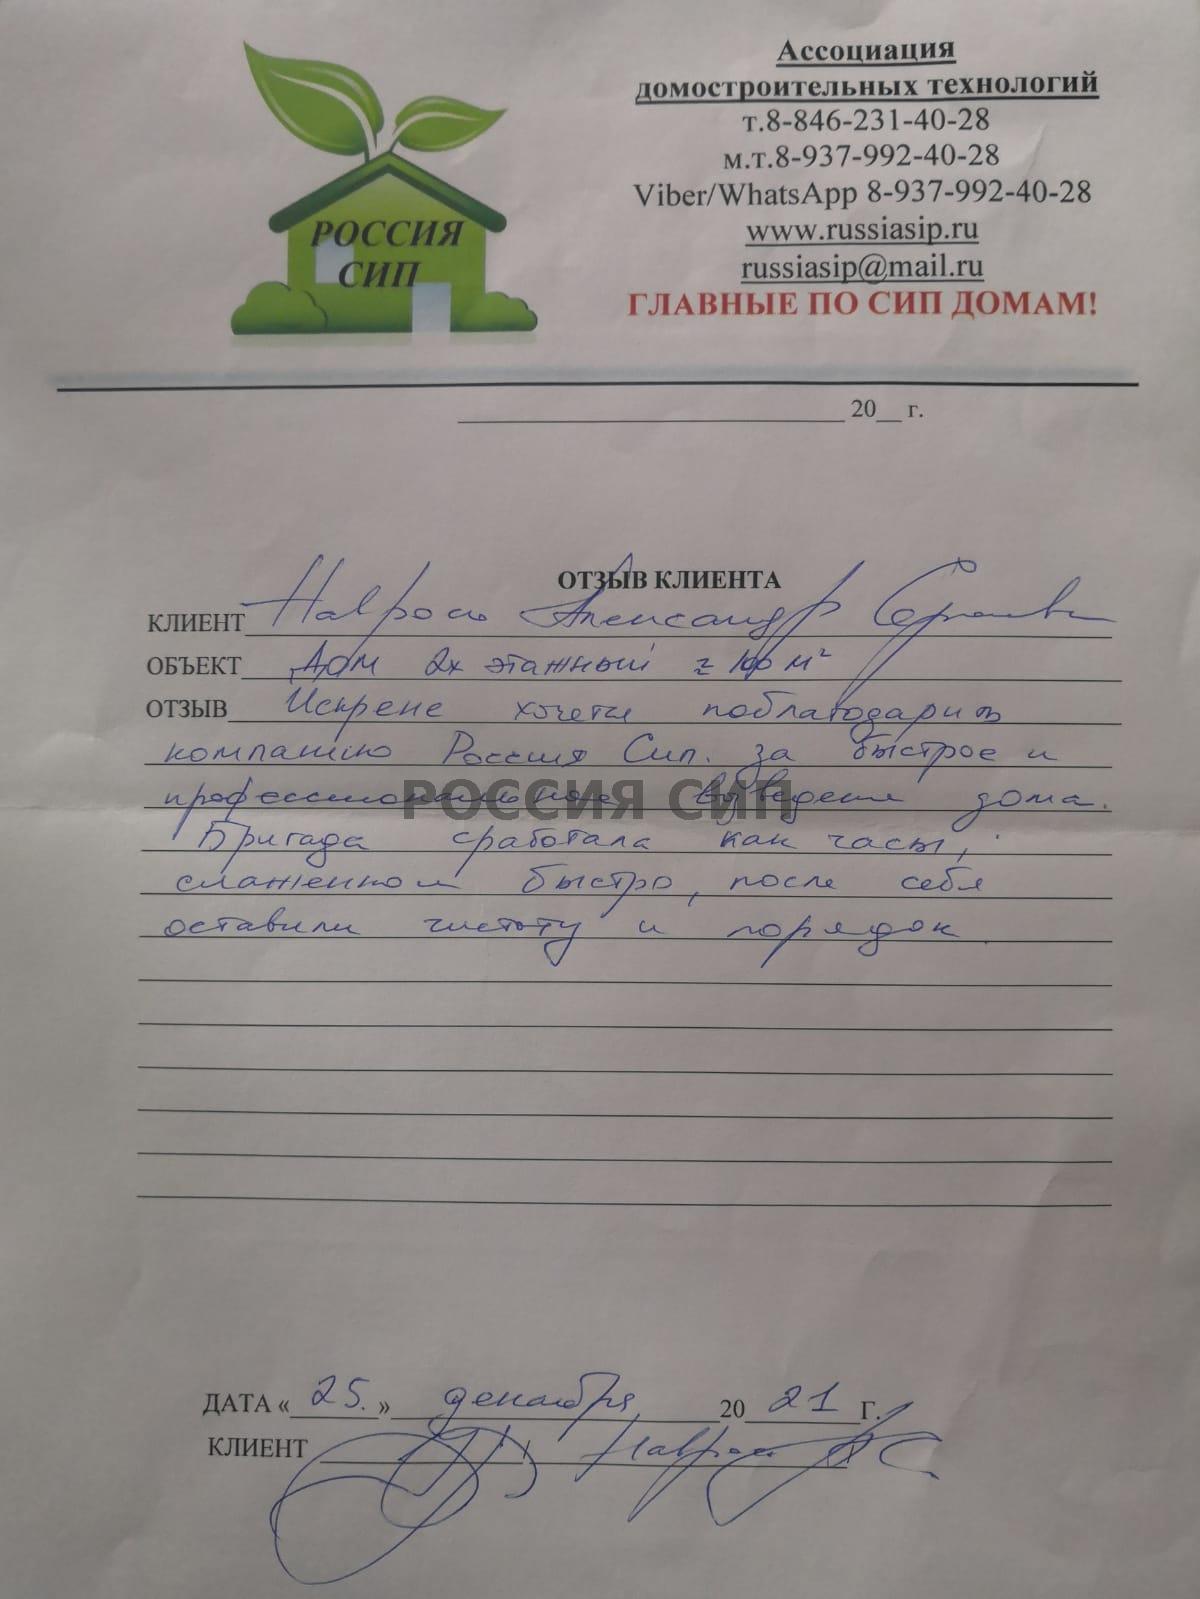 РОССИЯ
СИП
Ассоциация
домостроительных технологий
т.8-846-231-40-28
м.т.8-937-992-40-28
Viber/WhatsApp 8-937-992-40-28
www.russiasip.ru
russiasip@mail.ru
ГЛАВНЫЕ ПО СИП ДОМАМ!
20__ г.
ОТЗЫВ КЛИЕНТА
КЛИЕНТ Александр
ОБЪЕКТ Дом 2х этажный ≈ 100 м²
ОТЗЫВ Искрене хочется поблагодарить
компанию Россия Сип. за быстрое и
профессиональное возведения дома.
РОССИЯ СИП
Бригада сработала как часы,
слаженном быстро, после себя
оставили чистоту и порядок.
ДАТА « 25. » декабря 2021 Г.
КЛИЕНТ